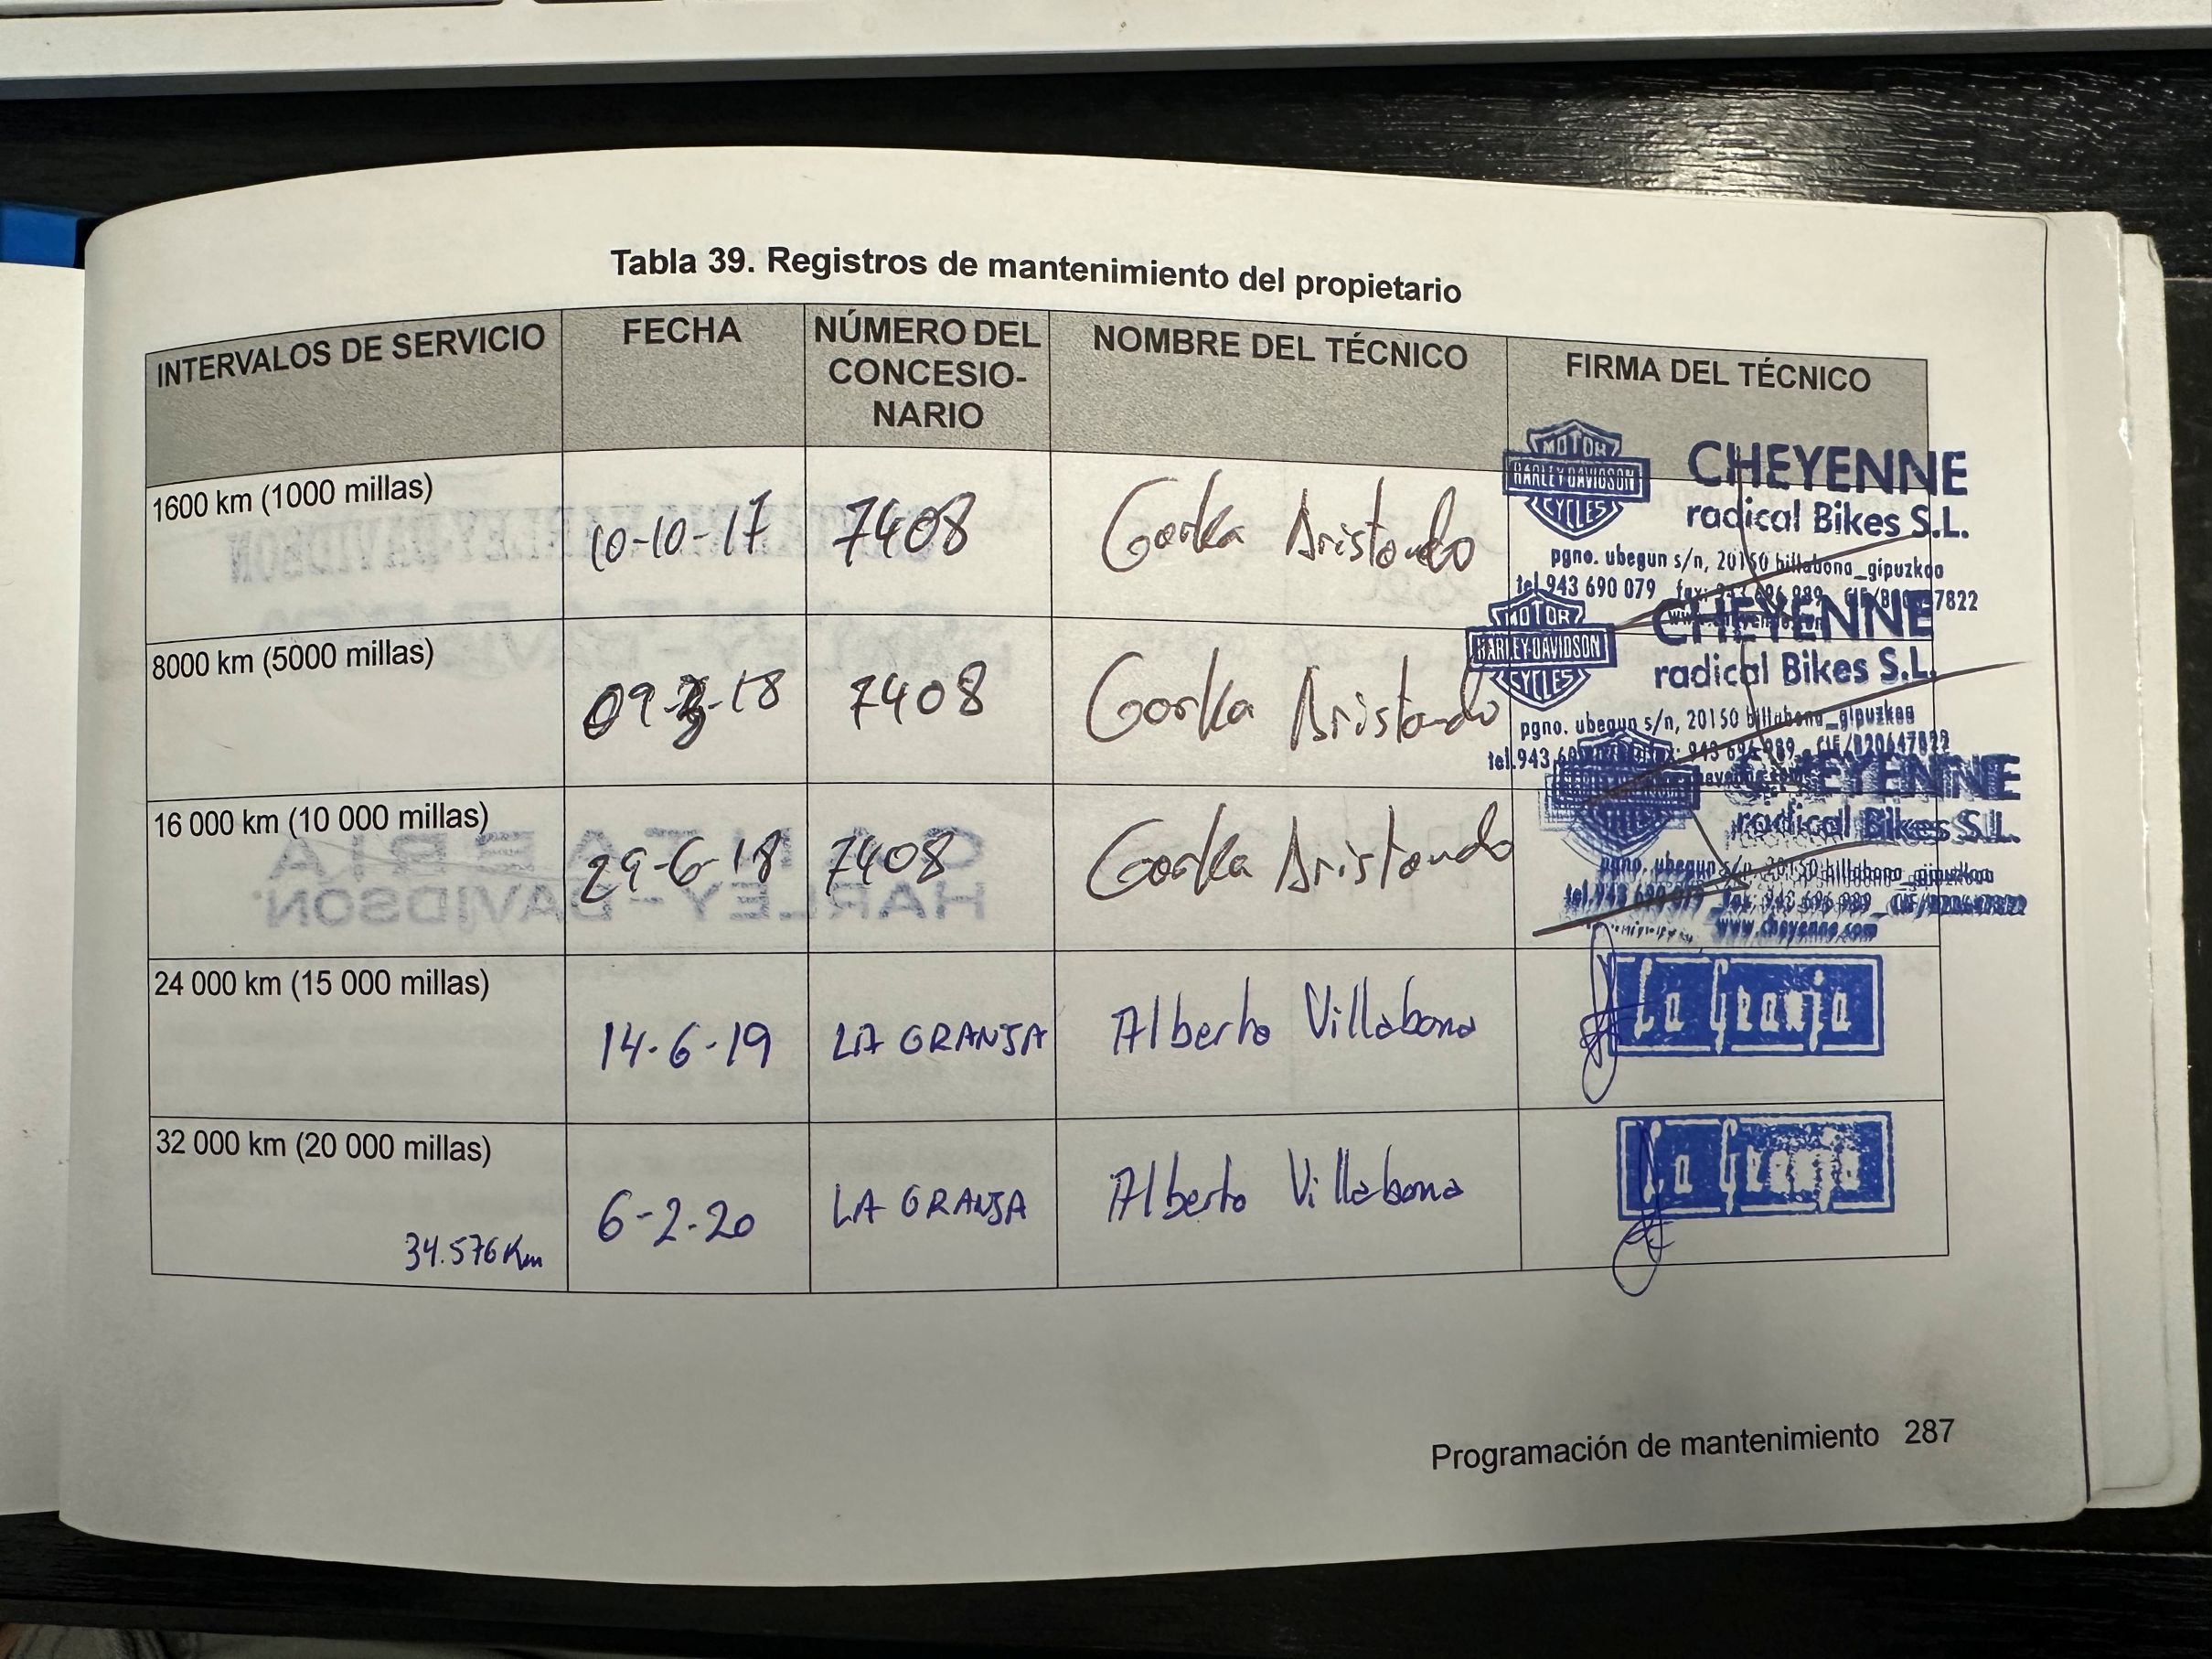 Tabla 39. Registros de mantenimiento del propietario
INTERVALOS DE SERVICIO
FECHA
NÚMERO DEL
CONCESIO-
NARIO
NOMBRE DEL TÉCNICO
FIRMA DEL TÉCNICO
1600 km (1000 millas)
10-10-17
7408
Gorka Aristondo
MOTOR
HARLEY-DAVIDSON
CYCLES
CHEYENNE
radical Bikes S.L.
pgno. ubegun s/n, 20150 billabona_gipuzkoa
tel.943 690 079 fax: 943 696 989_ CIF/B20647822
8000 km (5000 millas)
09-3-18
7408
Gorka Aristondo
MOTOR
HARLEY-DAVIDSON
CYCLES
CHEYENNE
radical Bikes S.L.
pgno. ubegun s/n, 20150 billabona_gipuzkoa
tel.943 fax: 943 696 989_ CIF/B20647822
16 000 km (10 000 millas)
29-6-18
7408
Gorka Aristondo
CHEYENNE
radical Bikes S.L.
pgno. ubegun s/n, 20150 billabona_gipuzkoa
tel.943 690 079 fax: 943 696 989_ CIF/B20647822
www.cheyenne.com
24 000 km (15 000 millas)
14-6-19
LA GRANJA
Alberto Villabona
La Granja
32 000 km (20 000 millas)
34.576 Km
6-2-20
LA GRANJA
Alberto Villabona
La Granja
Programación de mantenimiento 287